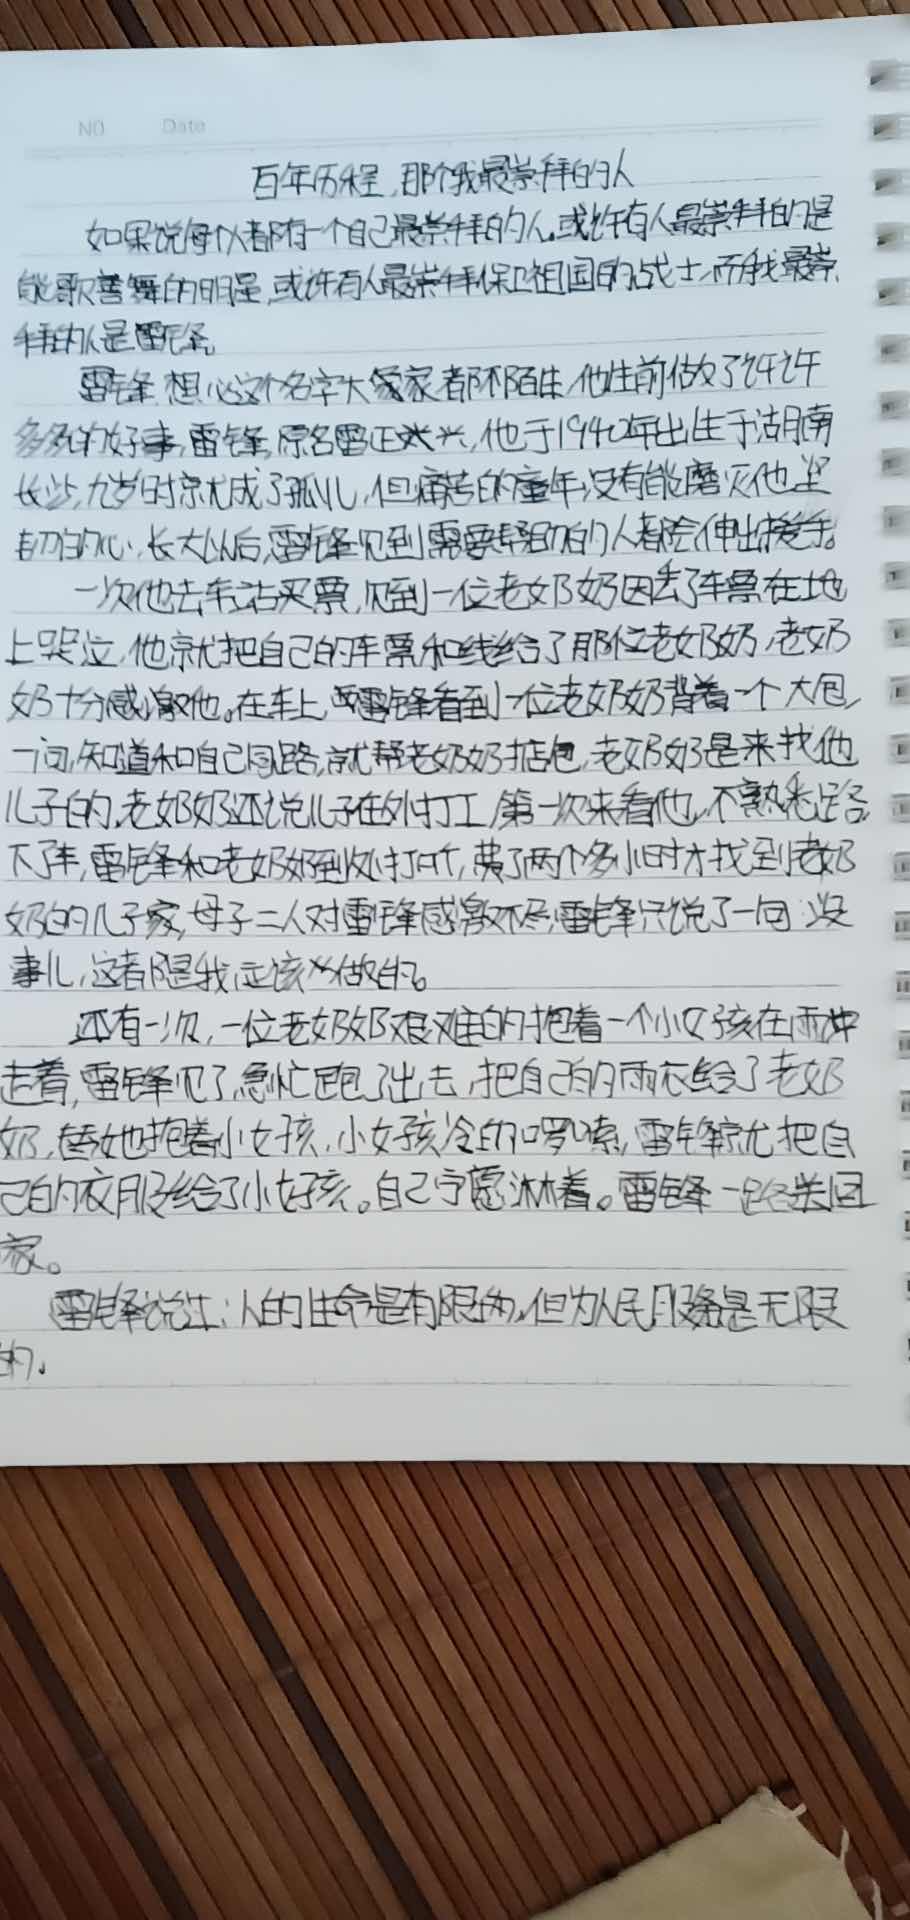 NO Date
百年历程,那个我最崇拜的人
如果说每个人都有一个自己最崇拜的人。或许有人最崇拜的是
能歌善舞的明星,或许有人最崇拜保卫祖国的战士,而我最崇
拜的人是雷锋。
雷锋,想必这个名字大家都不陌生,他生前做了许许
多多的好事,雷锋,原名雷正兴,他于1940年出生于湖南
长沙,九岁时就成了孤儿,但痛苦的童年,没有能磨灭他坚
韧的心,长大以后,雷锋见到需要帮助的人都会伸出援手。
一次他去车站买票,见到一位老奶奶因丢了车票在地
上哭泣,他就把自己的车票和钱给了那位老奶奶,老奶
奶十分感激他。在车上,雷锋看到一位老奶奶背着一个大包,
一问,知道和自己同路,就帮老奶奶掂包,老奶奶是来找他
儿子的,老奶奶还说儿子在外打工,第一次来看他,不熟悉路,
下了车,雷锋和老奶奶到处打听,费了两个多小时才找到老奶
奶的儿子家,母子二人对雷锋感激不尽,雷锋只说了一句:没
事儿,这都是我应该做的。
还有一次,一位老奶奶艰难的抱着一个小女孩在雨中
走着,雷锋见了,急忙跑了出去,把自己的雨衣给了老奶
奶,替她抱着小女孩,小女孩冷的啰嗦,雷锋就把自
己的衣服给了小女孩。自己宁愿淋着。雷锋一路送回
家。
雷锋说过:人的生命是有限的,但为人民服务是无限
的。